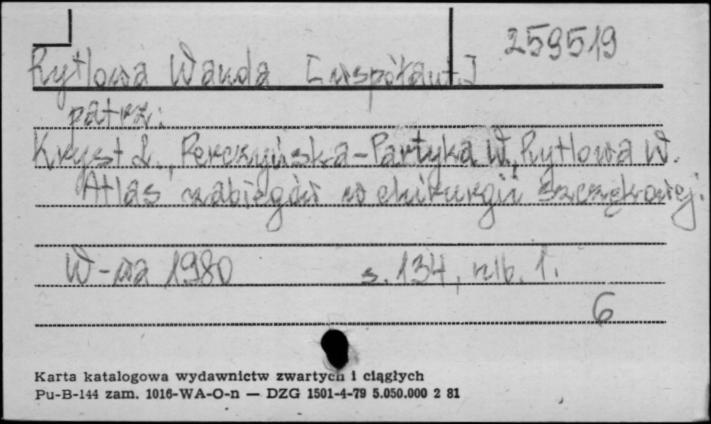 259519
Rytlowa Wanda [współaut.]
patrz:
Kryst L., Perczyńska-Partyka W., Rytlowa W.
Atlas zabiegów w chirurgii szczękowej.
W-wa 1980 s. 134, nlb. 1.
6
Karta katalogowa wydawnictw zwartych i ciągłych
Pu-B-144 zam. 1016-WA-O-n — DZG 1501-4-79 5.050.000 2 81